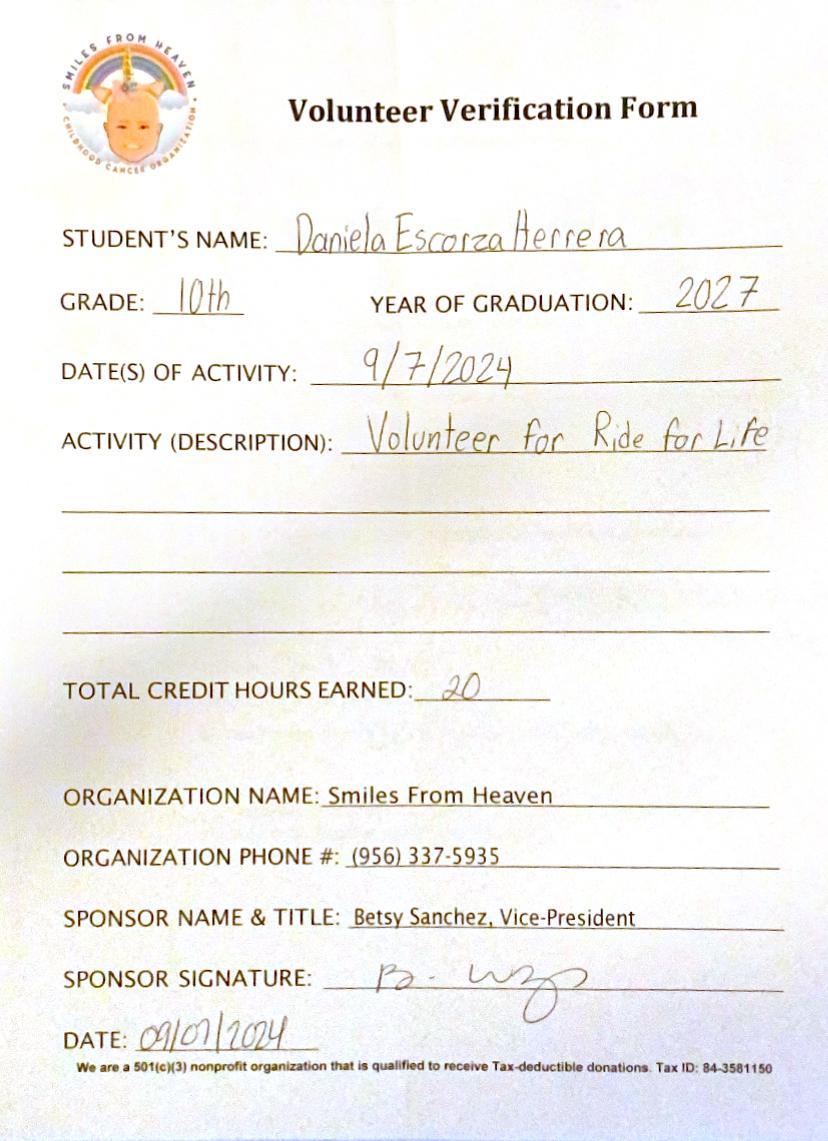 SMILES FROM HEAVEN
CHILDHOOD CANCER ORGANIZATION
Volunteer Verification Form
STUDENT'S NAME: Daniela Escorza Herrera
GRADE: 10th YEAR OF GRADUATION: 2027
DATE(S) OF ACTIVITY: 9/7/2024
ACTIVITY (DESCRIPTION): Volunteer for Ride for Life
TOTAL CREDIT HOURS EARNED: 20
ORGANIZATION NAME: Smiles From Heaven
ORGANIZATION PHONE #: (956) 337-5935
SPONSOR NAME & TITLE: Betsy Sanchez, Vice-President
SPONSOR SIGNATURE: B.
DATE: 09/07/2024
We are a 501(c)(3) nonprofit organization that is qualified to receive Tax-deductible donations. Tax ID: 84-3581150